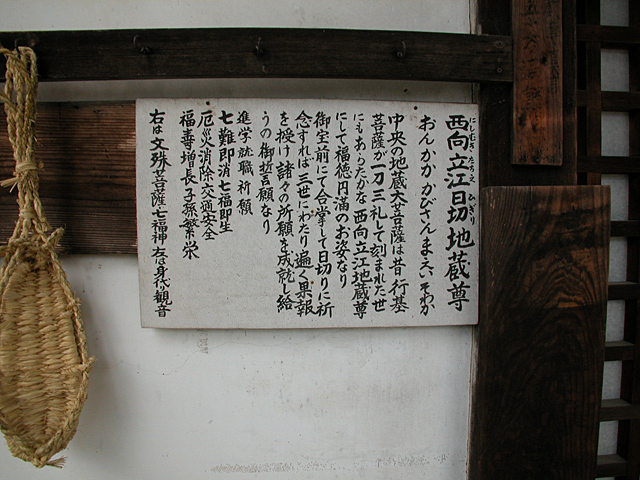 西向立江日切地蔵尊
にしむき たちえ ひぎり
おんかかかびさんま江いそわか
中央の地蔵大菩薩は昔行基
菩薩が一刀三礼して刻まれた世
にもあらたかな西向立江地蔵尊
にして福徳円満のお姿なり
御宝前にて合掌して日切りに祈
念すれば三世にわたり遍く果報
を授け諸々の所願を成就し給
うの御誓言願なり
進学就職祈願
七難即消七福即生
厄災消除交通安全
福寿増長子孫繁栄
右は文殊菩薩七福神 左は身代り観音